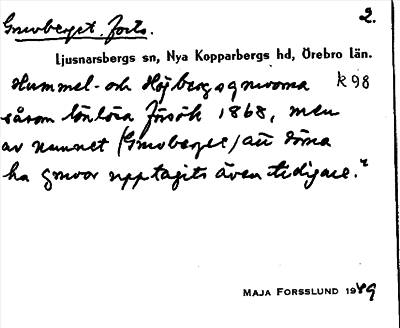 Gruvberget, forts. 2.
Ljusnarsbergs sn, Nya Kopparbergs hd, Örebro län.
Hummel- och Höjbergsgruvorna k 98
såsom lönlösa försök 1868, men
av namnet (Gruvberget) att döma
ha gruvor upptagits även tidigare."
MAJA FORSSLUND 1949